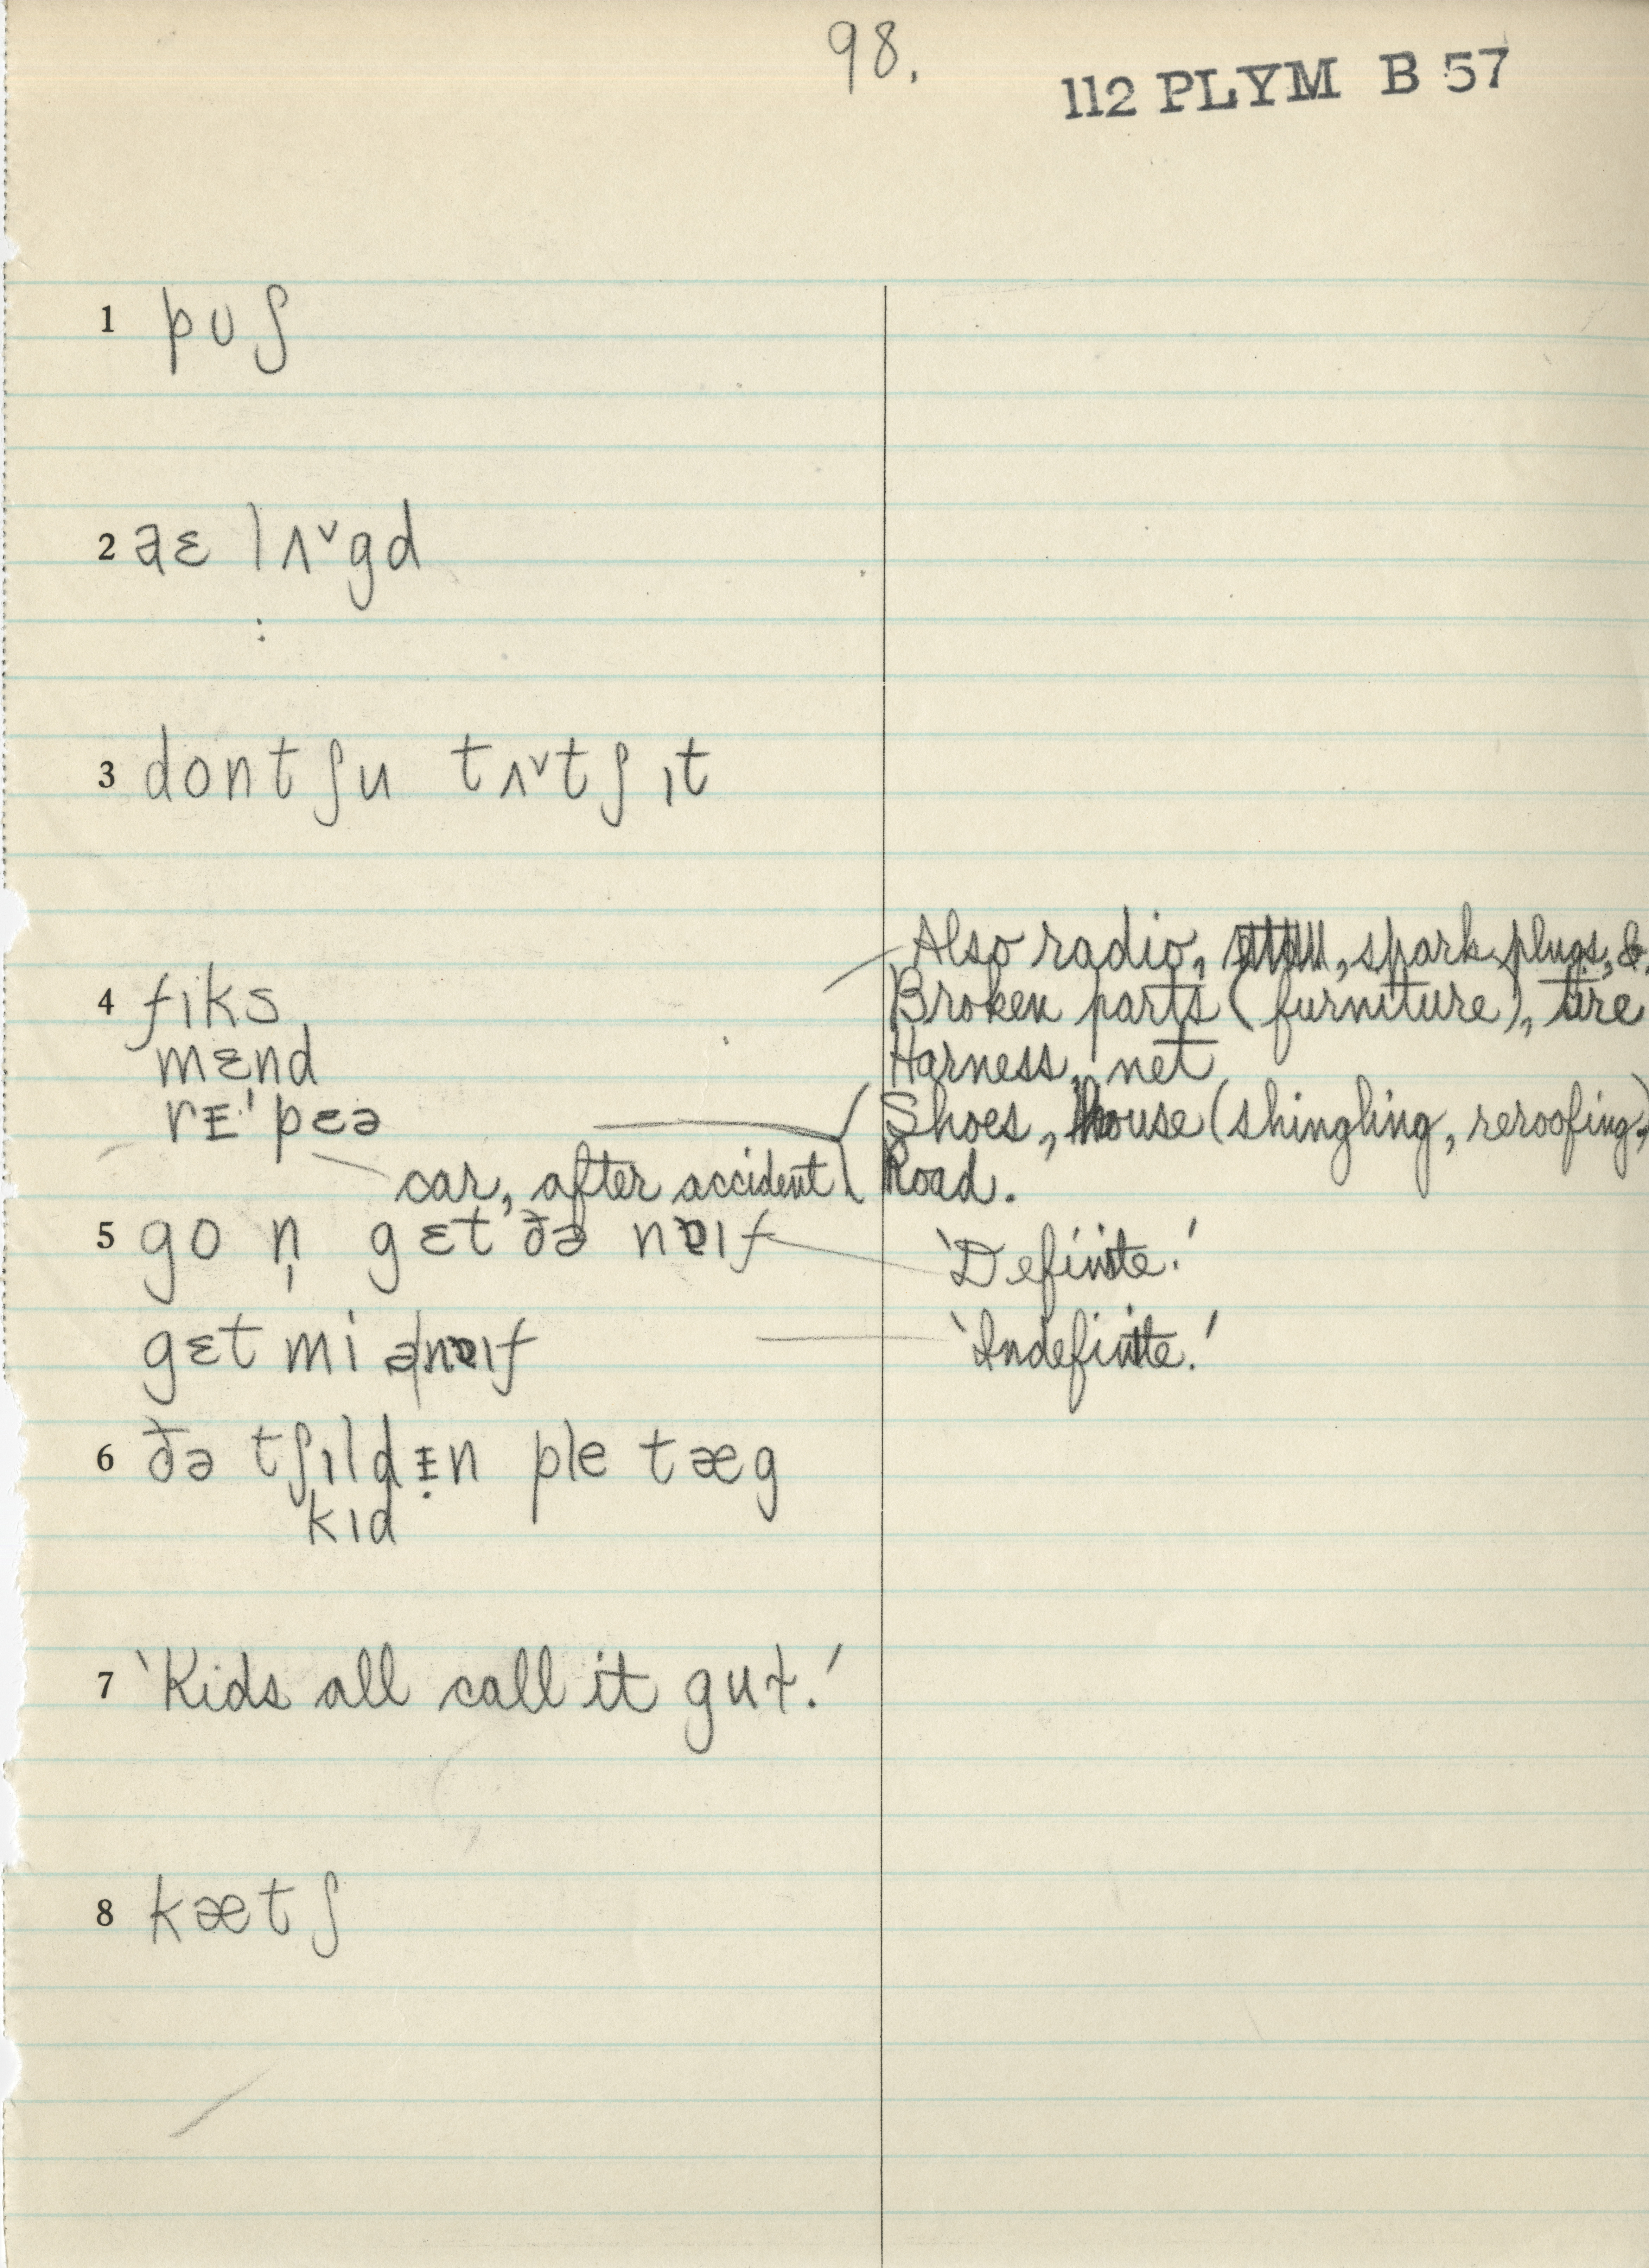 98.
112 PLYM B 57
1 pʊʃ
2 aɛ lʌ˅gd
3 dontʃu tʌ˅tʃ ɪt
Also radio, , spark plugs, &.
4 fɪks Broken parts (furniture), tire
mɛnd Harness, net
rᵻˈpɛə Shoes, house (shingling, reroofing,)
car, after accident Road.
5 go n̩ gɛt ðə nɐɪf 'Definite.'
gɛt mi ə|nɐɪf 'Indefinite.'
6 ðə tʃɪldᵻ̣n ple tæg
kɪd
7 'Kids all call it gut.'
8 kætʃ